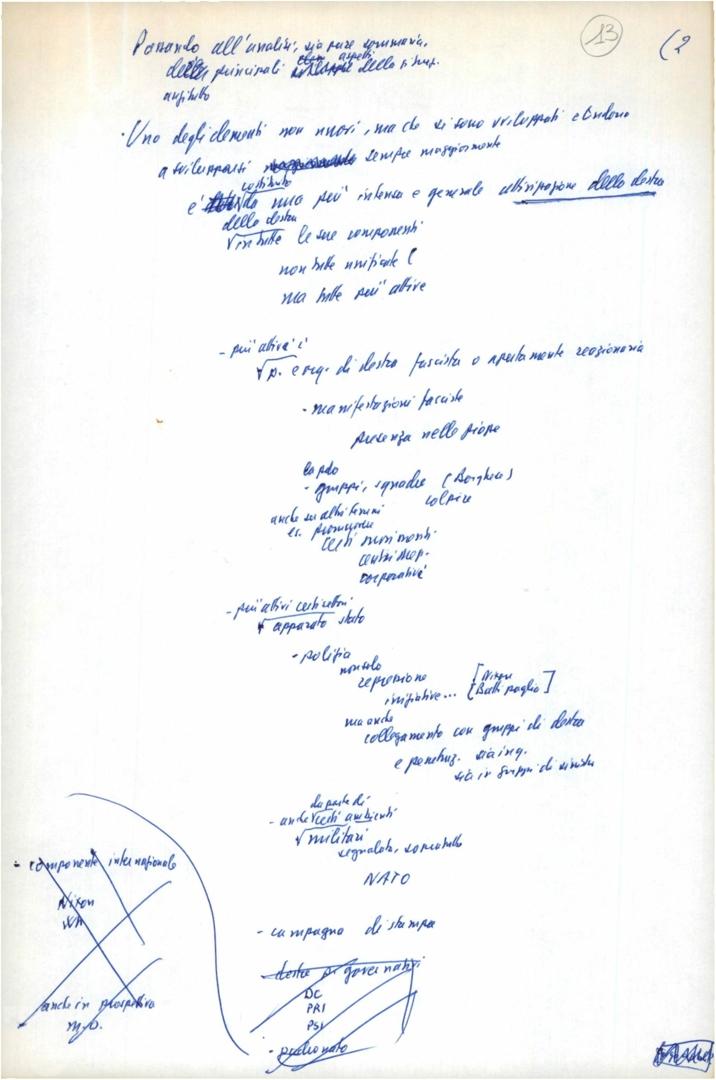 13
(2
Passando all'analisi, sia pure sommaria,
elem aspetti
delle principali della situaz.
anzitutto
· Uno degli elementi non nuovi, ma che si sono sviluppati e tendono
a svilupparsi maggiormente sempre maggiormente
costituito
è da una più intensa e generale attivizzazione della destra
della destra
in tutte le sue componenti
non tutte unificate (
ma tutte più attive
- più attiva è
p. e org. di destra fascista o apertamente reazionaria
- manifestazioni fasciste
presenza nelle piazze
- gruppi, squadre (Borghese)
colpire
anche su altri terreni
es. promuovere
certi movimenti
corporativi
- più attivi certi settori
apparato stato
- polizia
non solo
repressione
iniziative... [Nixon
[Battipaglia]
ma anche
collegamento con gruppi di destra
e penetraz. sia in q.
sia in gruppi di sinistra
da parte di
- anche certi ambienti
militari
segnalata, soprattutto
NATO
- campagna di stampa
- destra p. governativi
DC
PRI
PSI
- padronato
- componente internazionale
Nixon
anche in prospettiva
M.O.